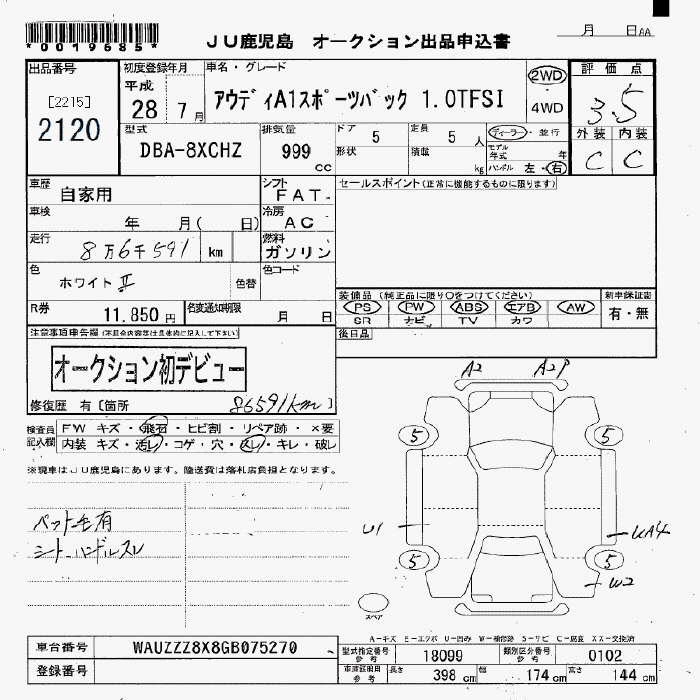 *0019685*
JU鹿児島 オークション出品申込書
月 日AA
出品番号
[2215]
2120
初度登録年月
平成
28 7月
車名・グレード
アウディA1スポーツバック 1.0TFSI
2WD
4WD
評価点
3.5
外装 内装
C C
型式
DBA-8XCHZ
排気量
999
cc
ドア 5
定員 5 人
形状
積載 kg
ディーラー・並行
モデル年式 年
ハンドル 左・右
車歴
自家用
シフト
FAT
セールスポイント(正常に機能するものに限ります)
車検
年 月( 日)
冷房
AC
走行
8万6千591 km
燃料
ガソリン
色
ホワイトⅡ
色替
色コード
R券
11,850円
名変通知期限
月 日
装備品(純正品に限り○をつけてください)
PS PW ABS エアB AW
SR ナビ TV カワ
新車保証書
有・無
後日品
注意事項申告欄(不具合内容等は具体的に記入して下さい)
オークション初デビュー
修復歴 有[箇所 86591km]
検査員記入欄
FW キズ・飛石・ヒビ割・リペア跡・×要
内装 キズ・汚レ・コゲ・穴・スレ・キレ・破レ
※現車はJU鹿児島にあります。陸送費は落札店負担となります。
ペット毛有
シートハンドルスレ
A2 A2P
5 5
U1
5 5
W2
スペア
A-キズ E-エクボ U-凹み W-補修跡 S-サビ C-腐食 XX-交換済
車台番号
WAUZZZ8X8GB075270
登録番号
型式指定番号 参考
18099
類別区分番号 参考
0102
車検証明用 参考
長さ 398 cm
幅 174 cm
高さ 144 cm